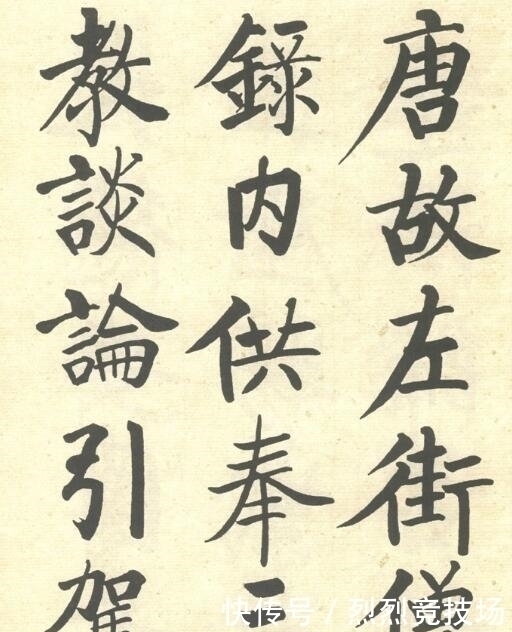 唐故左街僧
錄内供奉
教談論引駕
快传号 / 烈烈竞技场